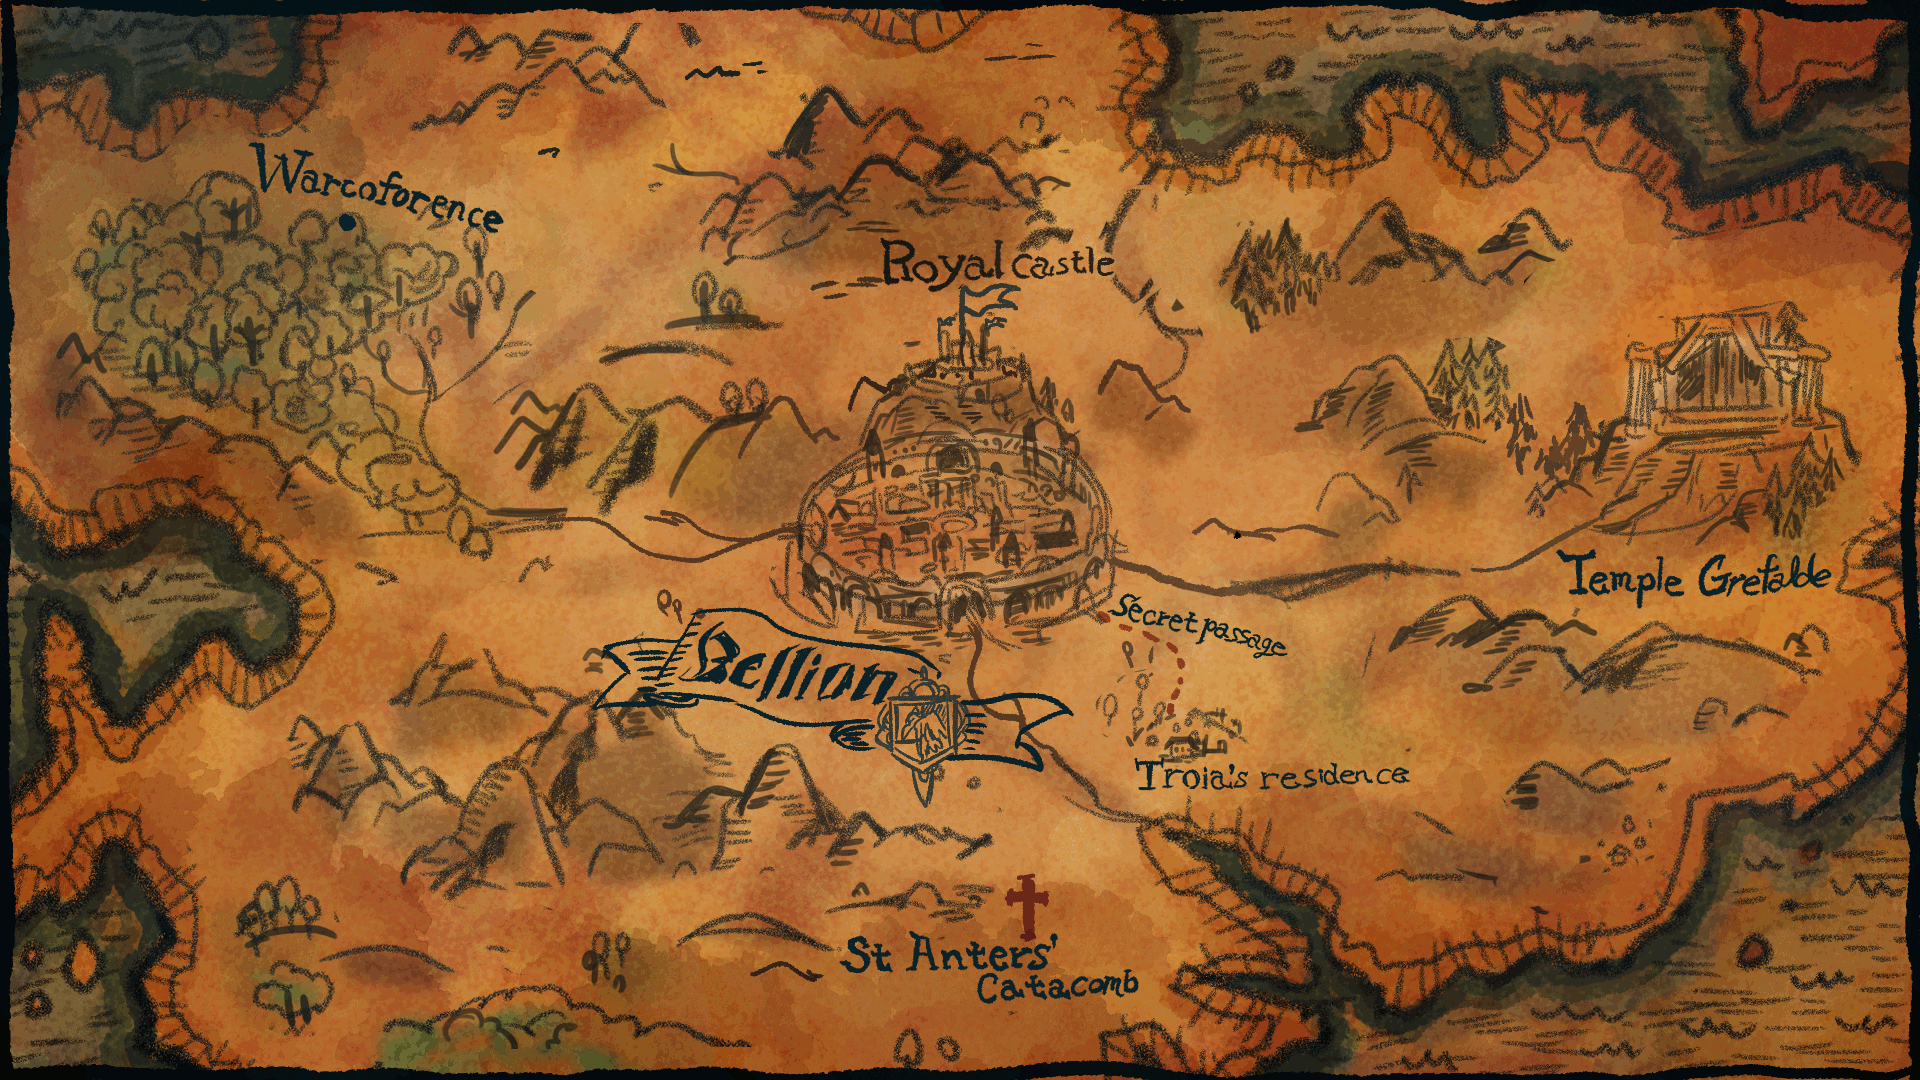 Warcoforence
Royal castle
Temple Grefalde
Secret passage
Bellion
Troia's residence
St Anters'
Catacomb